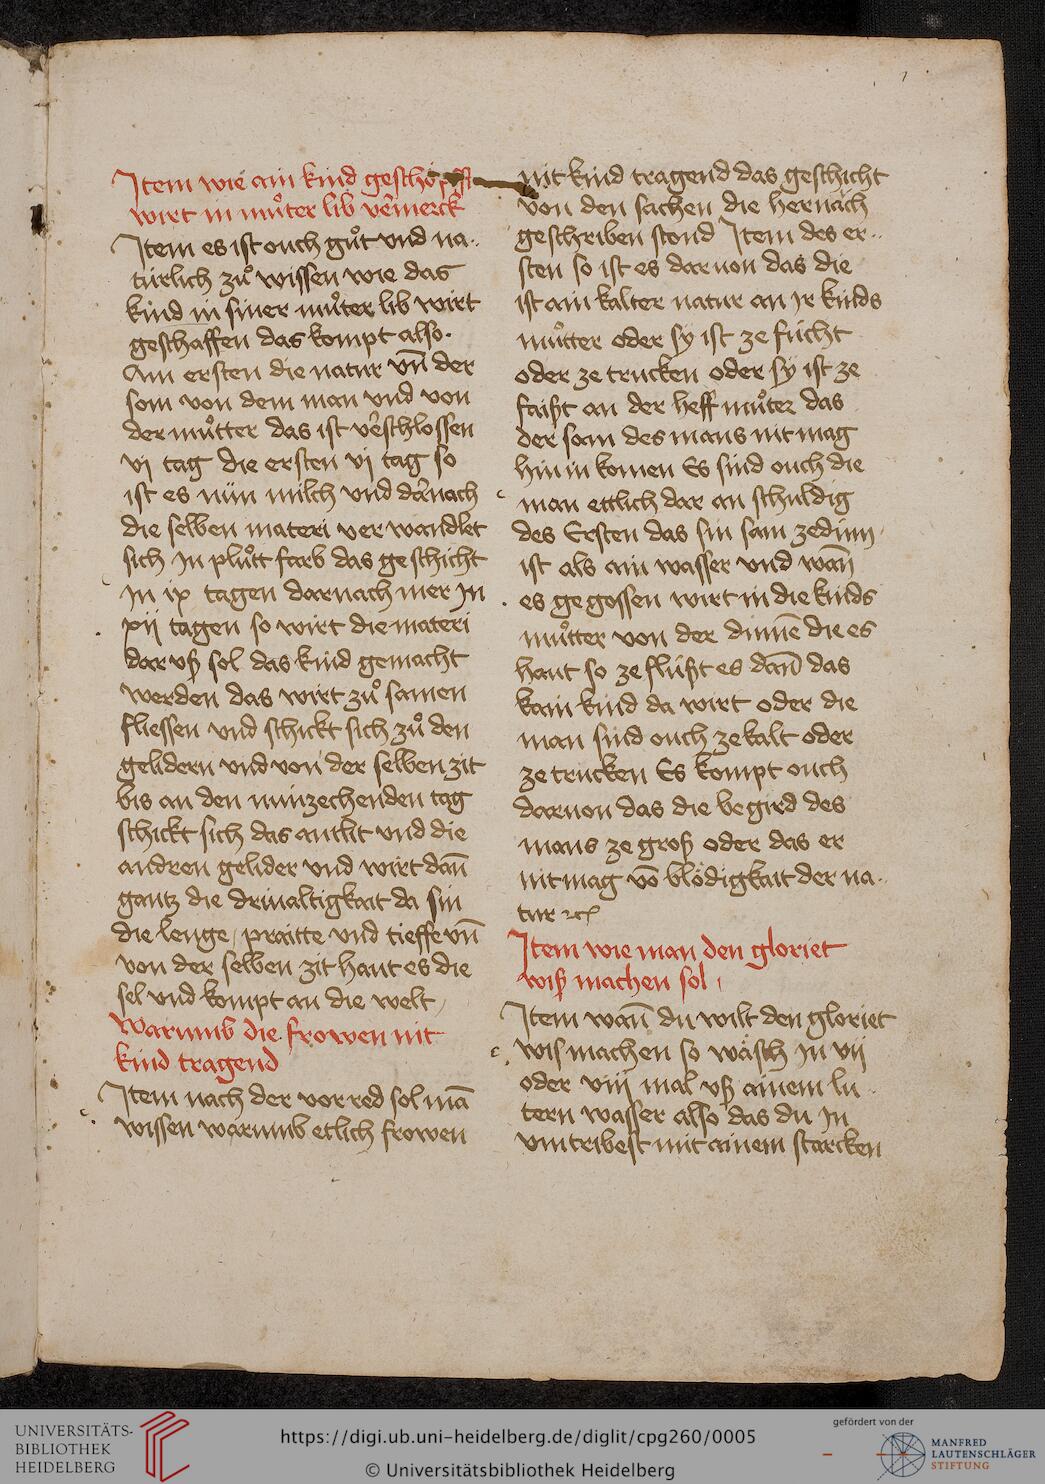 1
Item wie ain kind geschöpfft
wirt in muͦter lib vermerck
Item es ist ouch guͦt vnd na-
türlich zuͦ wissen wie das
kind in siner muͦter lib wirt
geschaffen das kompt also.
Am ersten die natur vn̄ der
som von dem man vnd von
der muͦtter das ist v'schlossen
vj tag die ersten vj tag so
ist es nün milch vnd darnach
die selben materi verwandlet
sich In pluͦtt farb das geschicht
In ix tagen darnach mer In
xij tagen so wirt die materi
dar vß sol das kind gemacht
werden das wirt zuͦ samen
fliessen vnd schickt sich zuͦ den
gelidern vnd von der selben zit
bis an den nünzechenden tag
schickt sich das antlit vnd die
andren gelider vnd wirt dan̄
gantz die driualtigkait da sin
die lenge / praitte vnd tieffe vn̄
von der selben zit haut es die
sel vnd kompt an die welt /
Warumb die frowen nit
kind tragend
Item nach der vor red sol mā
wissen warumb etlich frowen
nit kind tragend das geschicht
von den sachen die hernäch
geschriben stond Item des er-
sten so ist es daruon das die
ist ain kalter natur an Ir kinds
muͦtter oder sy ist ze fücht
oder ze trucken oder sy ist ze
faißt an der heff muͦter das
der som des mans nit mag
hin in komen Es sind ouch die
man ettlich dar an schuldig
des Ersten das sin sam ze dünn
ist als ain wasser vnd wan̄
es gegossen wirt in die kinds
muͦtter von der dünnē die es
haut so ze flüßt es dan̄ das
kain kind da wirt oder die
man sind ouch ze kalt oder
ze trucken Es kompt ouch
daruon das die begird des
mans ze groß oder das er
nit mag vō blödigkait der na-
tur ꝛc
Item wie man den gloriet
wiß machen sol /
Item wan̄ du wilt den gloriet
wis machen so wäsch In vij
oder viij mal vß ainem lu-
tern wasser also das du In
vmtribest mit ainem starcken
UNIVERSITÄTS-
BIBLIOTHEK
HEIDELBERG
https://digi.ub.uni-heidelberg.de/diglit/cpg260/0005
© Universitätsbibliothek Heidelberg
gefördert von der
MANFRED
LAUTENSCHLÄGER
STIFTUNG